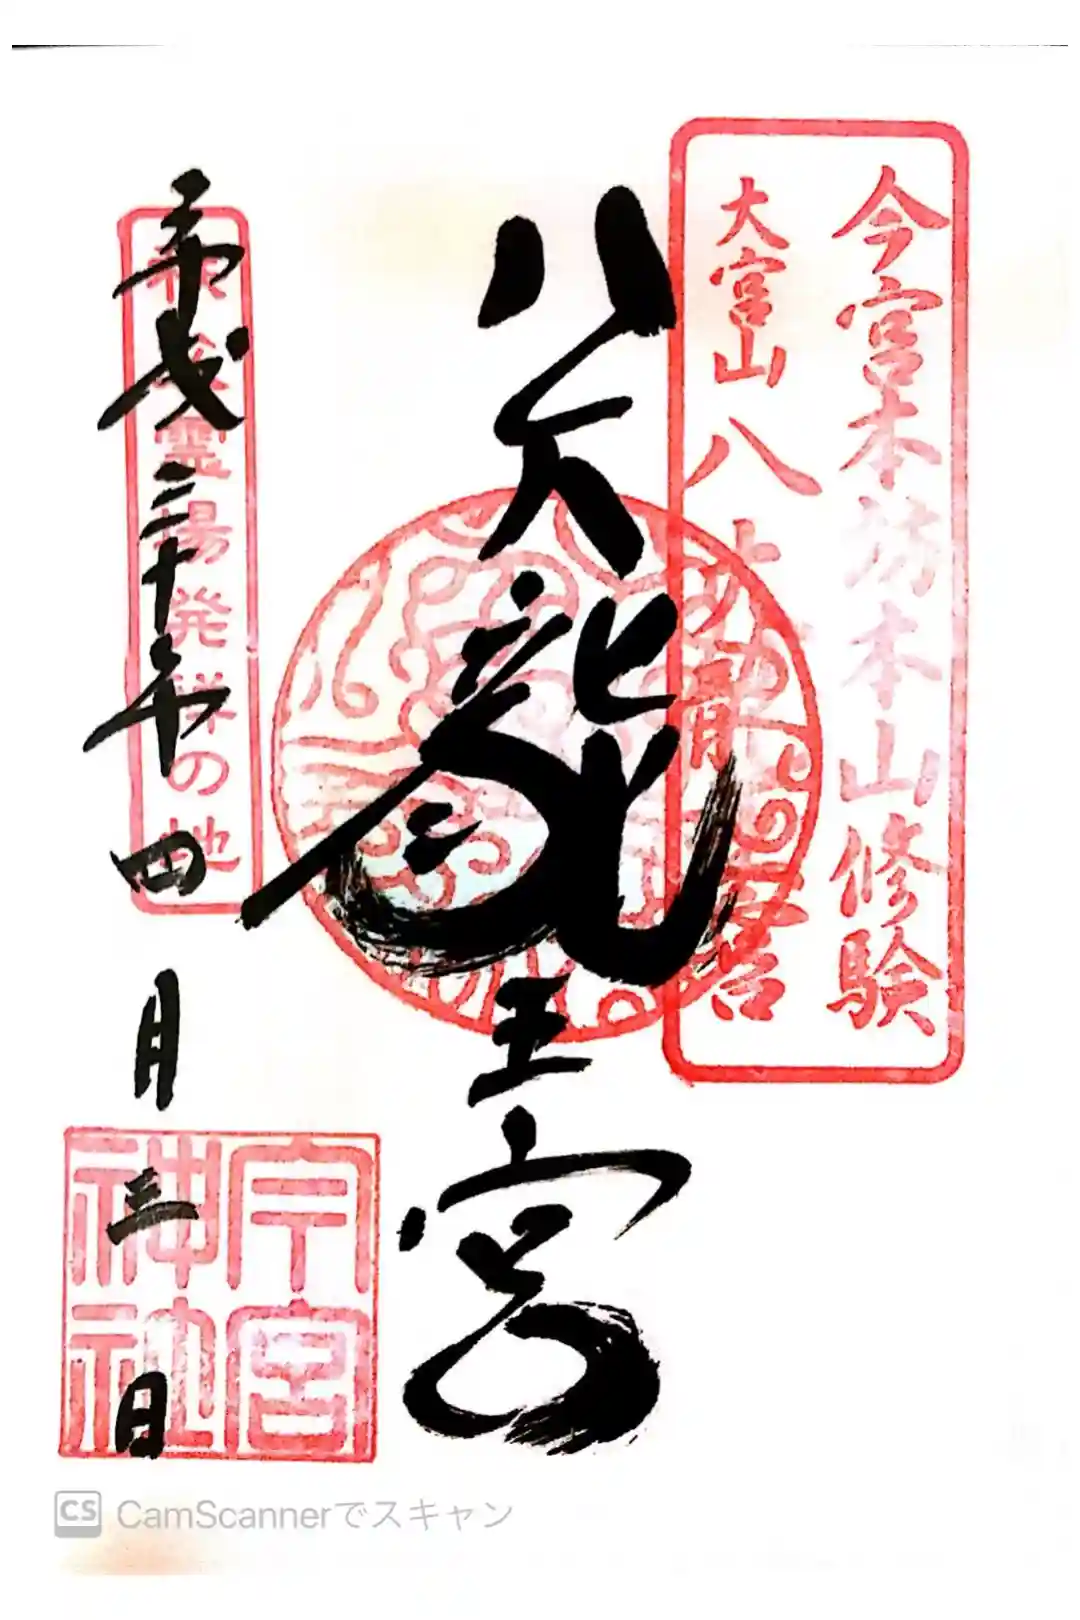 今宮本坊本山修験
大宮山八大龍王宮
八大龍王宮
秩父霊場発祥の地
平成三十年四月三日
今宮
神社
CS CamScannerでスキャン